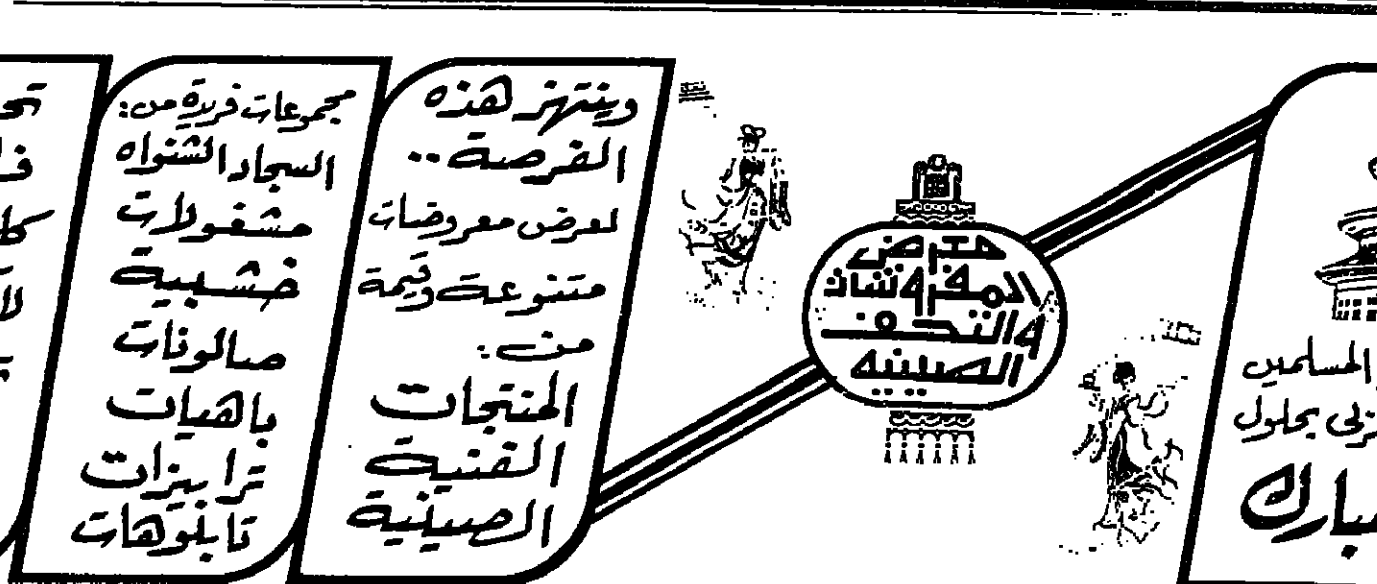 المسلمين
بحلول
معرض
المفروشات
والتحف
الصينيه
وينتهز هذه
الفرصة ..
لعرض معروضات
متنوعة وقيمة
من :
المنتجات
الفنية
الصينية
مجموعات فريدة من:
السجاد الشنواه
مشغولات
خشبية
صالونات
باهيات
ترابيزات
تابلوهات